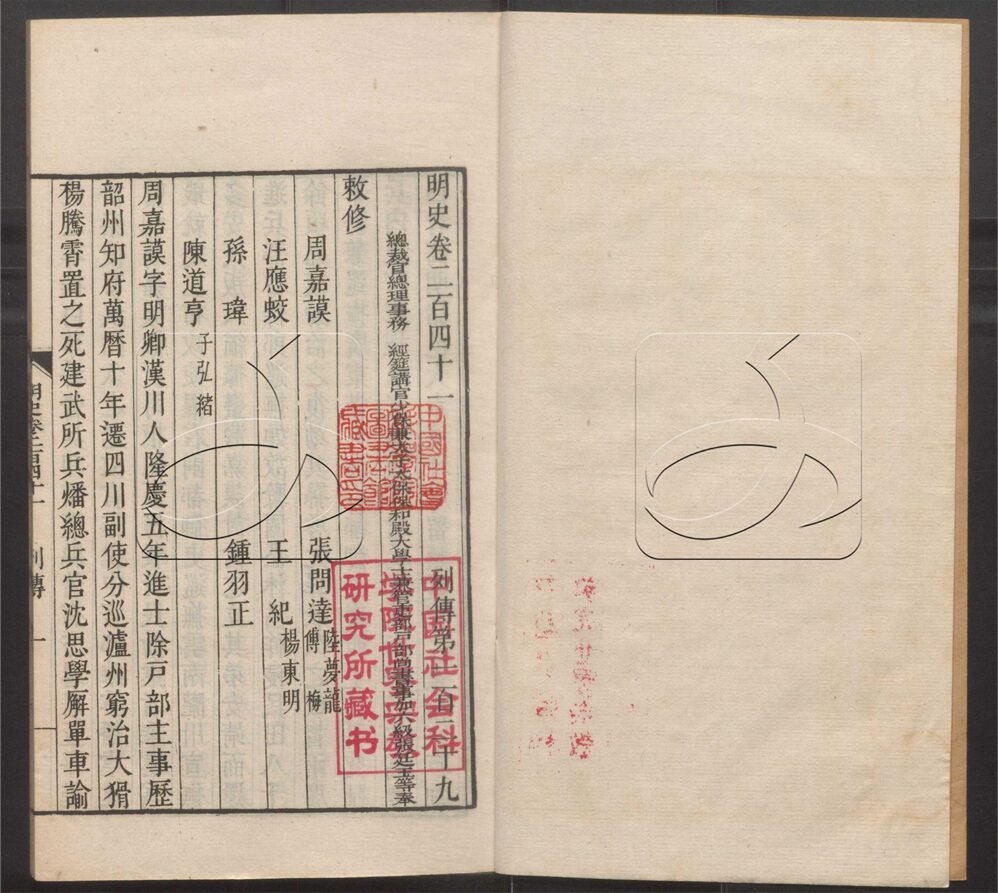 明史卷二百四十一 列傳第一百二十九
總裁官總理事務 經筵講官少保兼太子太保保和殿大學士兼管吏部戶部尚書事加六級張廷玉等奉
敕修
周嘉謨 張問達 陸夢龍 傅梅
汪應蛟 王紀 楊東明
孫瑋 鍾羽正
陳道亨 子弘緒
周嘉謨字明卿漢川人隆慶五年進士除戶部主事歷
韶州知府萬曆十年遷四川副使分巡瀘州窮治大猾
楊騰霄置之死建武所兵燔總兵官沈思學廨單車諭
明史卷二百四十一 列傳 一
中國社會
科學院
圖書館
藏書印
中国社会科
学院世界历史
研究所藏书